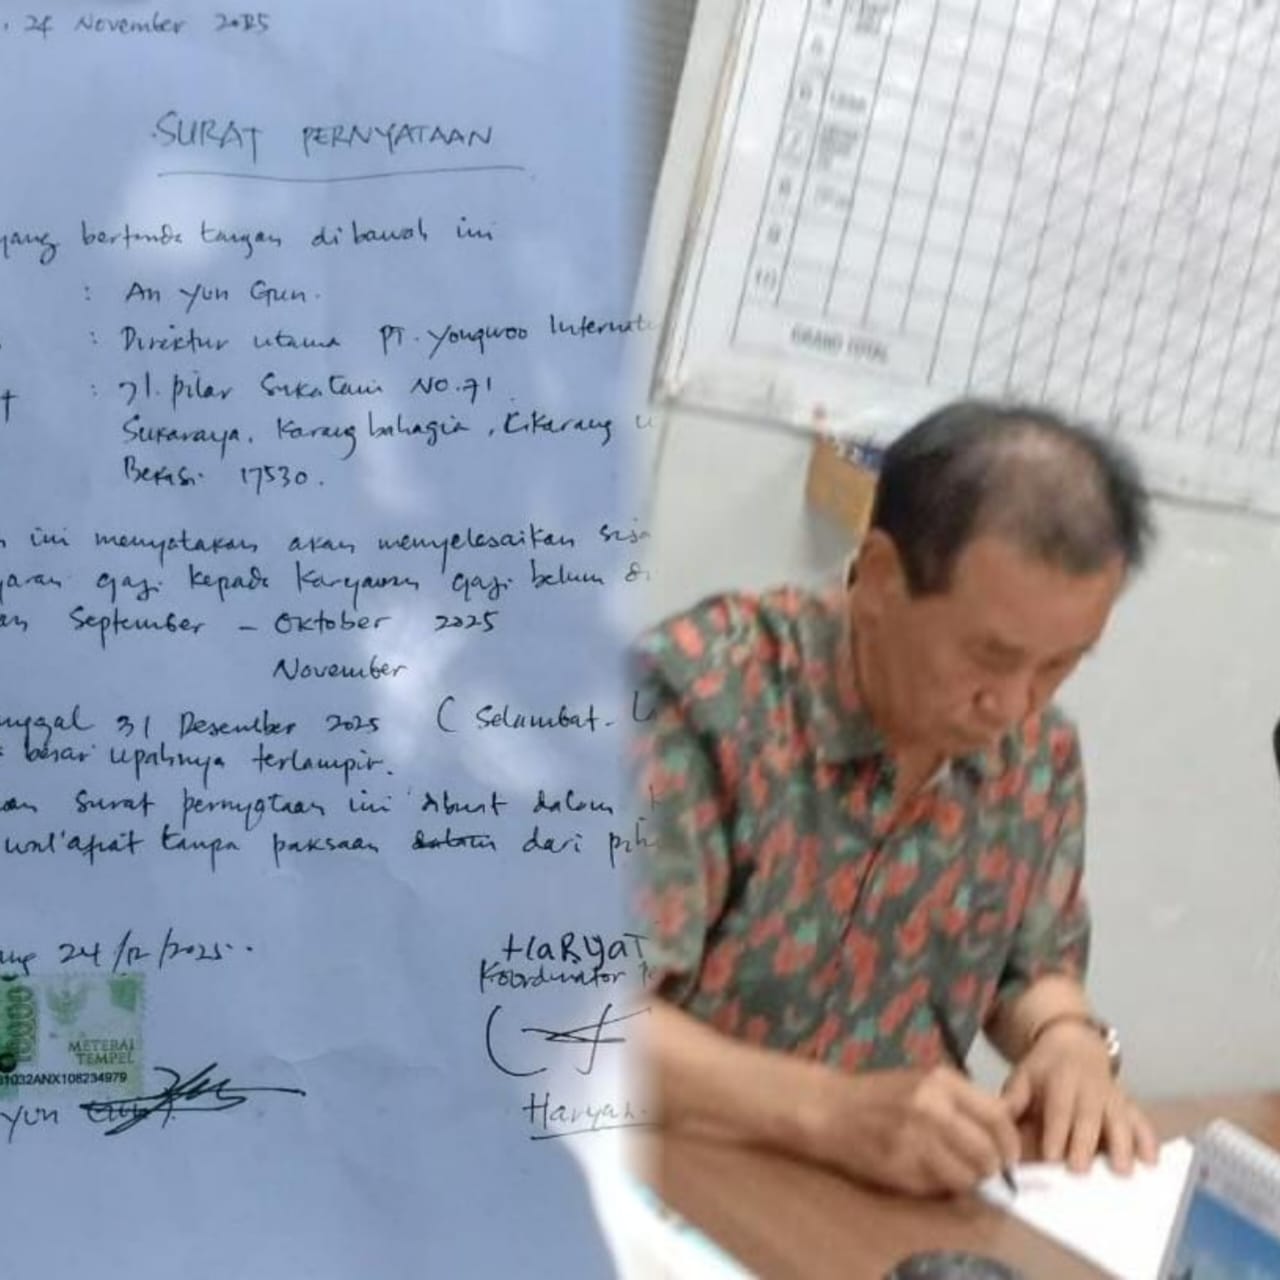 . 24 November 2025
SURAT PERNYATAAN
yang bertanda tangan di bawah ini
: An Yun Gun.
: Direktur utama PT. Yongwoo Internati
: Jl. Pilar Sukatani NO.71
Sukaraya, Karang bahagia, Cikarang u
Bekasi 17530.
ini menyatakan akan menyelesaikan sisa
yaran gaji kepada Karyawan gaji belum di
an September - Oktober 2025
November
nggal 31 Desember 2025 ( Selambat-
besar upahnya terlampir.
an surat pernyataan ini dibuat dalam
tanpa paksaan dalam dari pih
ng 24/12/2025..
HaRYaT
Koordinator
10000
METERAI
TEMPEL
1032ANX108234979
Yun Gun
Haryat
6
7
8
9
10
GRAND TOTAL